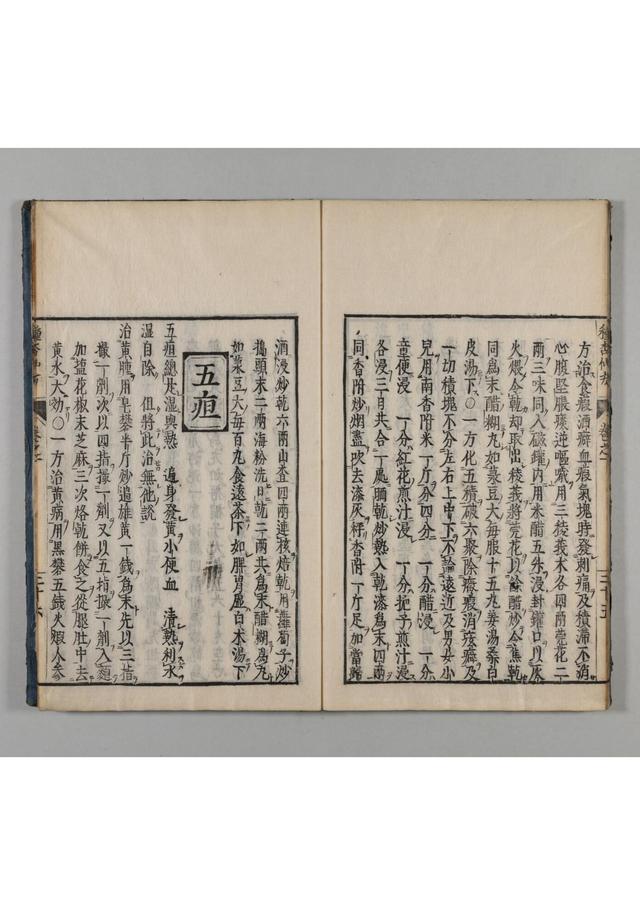 方治食瘕酒癖血瘕氣塊時發刺痛及積滯不消
心腹堅脹痰逆嘔噦用三稜莪木各四兩芫花二
兩三味同入磁罐內用米醋五朱浸封罐口以灰
火煨令乾却取出稜莪將芫花以餘醋炒令焦乾
同爲末醋糊丸如菉豆大每服十五丸姜湯桑白
皮湯下○一方化五積破六聚除癥瘕消痃癖及
一切積塊不分左右上中下不論遠近及男女小
兒用南香附米一斤分四分 一分醋浸 一分
童便浸 一分紅花煎汁浸 一分梔子煎汁浸
各浸三日共合一處晒乾炒熱入乾漆爲末四兩
同香附炒烟盡吹去漆灰秤香附一斤足加當歸
酒浸炒乾六兩山查四兩連核焙乾用蘿蔔子炒
搗頭末二兩海粉洗日乾二兩共爲末醋糊爲丸
如菉豆大每百丸食遠茶下如脾胃虛白术湯下
五疸
五疸總是濕與熱 遍身發黃小便血 清熱利水
濕自除 但將此治無他說
治黃腫用皂礬半斤炒過雄黃一錢爲末先以三指
撮一劑次以四指撮一劑又以五指撮一劑入麵
加塩花椒末芝麻三次烙乾餅食之從腿肚中去
黃水大効○一方治黃病用黑礬五錢火煅人參
卷之二 二十五